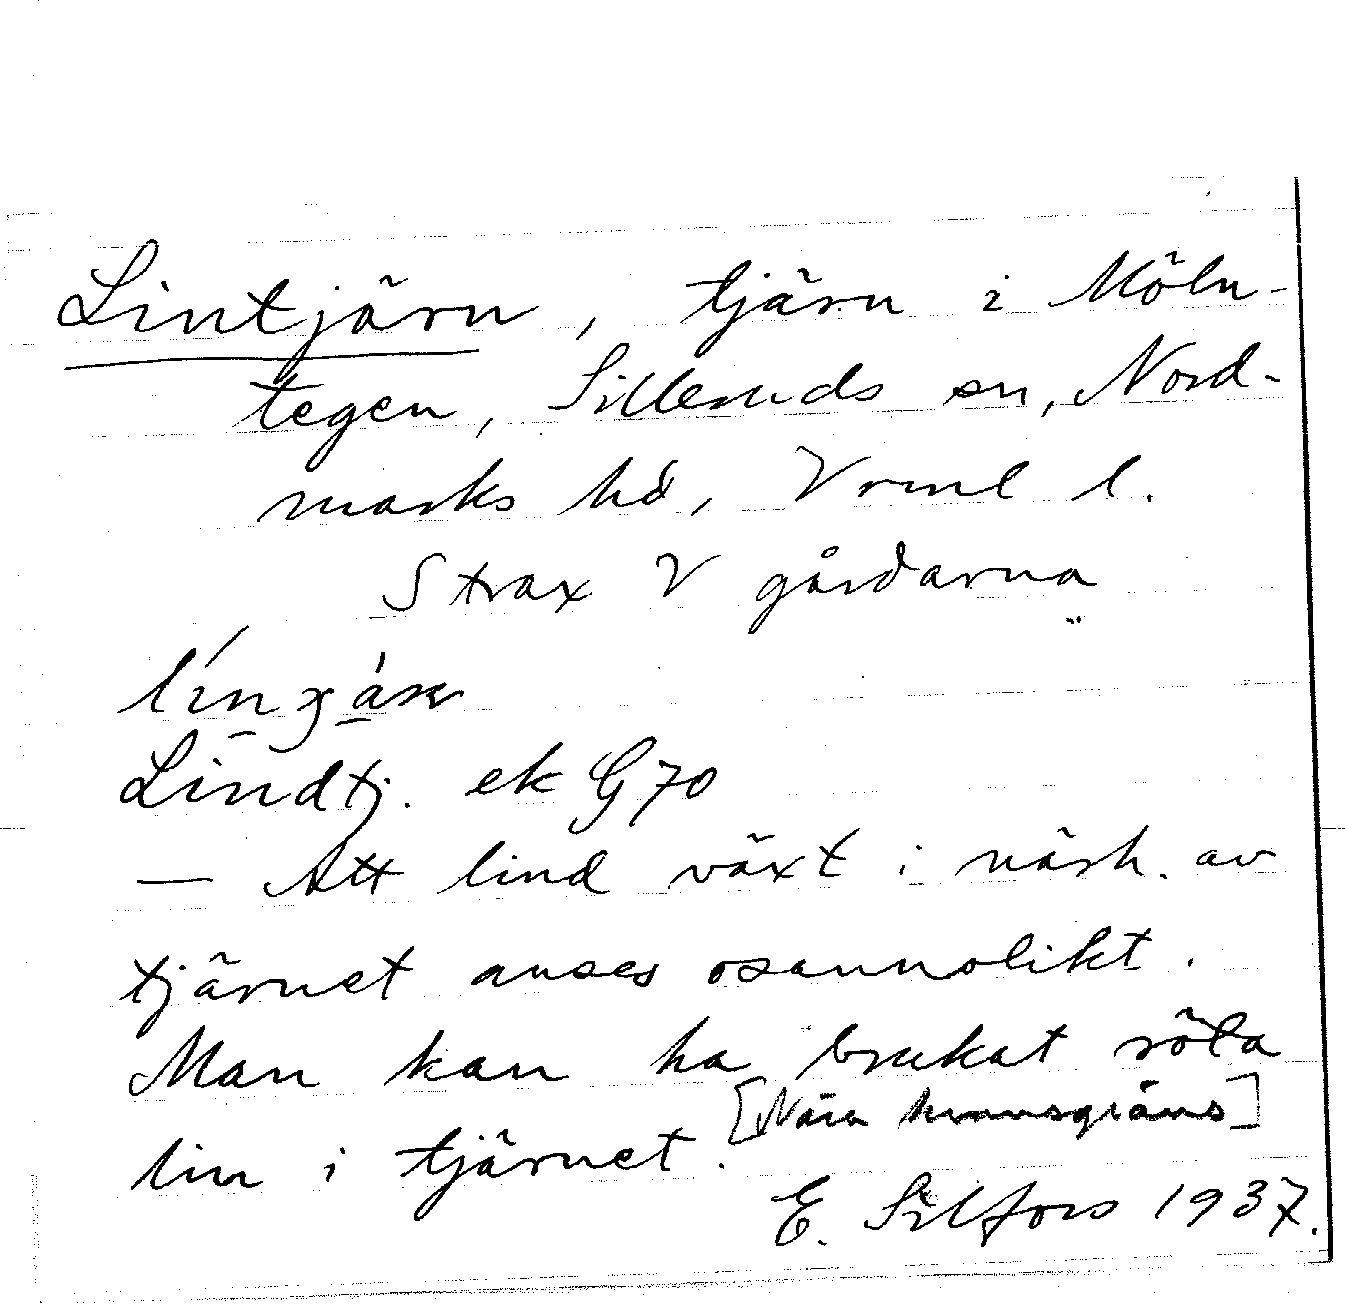 Lintjärn, tjärn i Möln-
tegen, Silleruds sn, Nord-
marks hd, Vrml l.
Strax V gårdarna
Lindtj. ek G70
— Att lind växt i närh. av
tjärnet anses osannolikt.
Man kan ha brukat röta
[Nära hemmansgräns]
lin i tjärnet.
E. Silfors 1937.